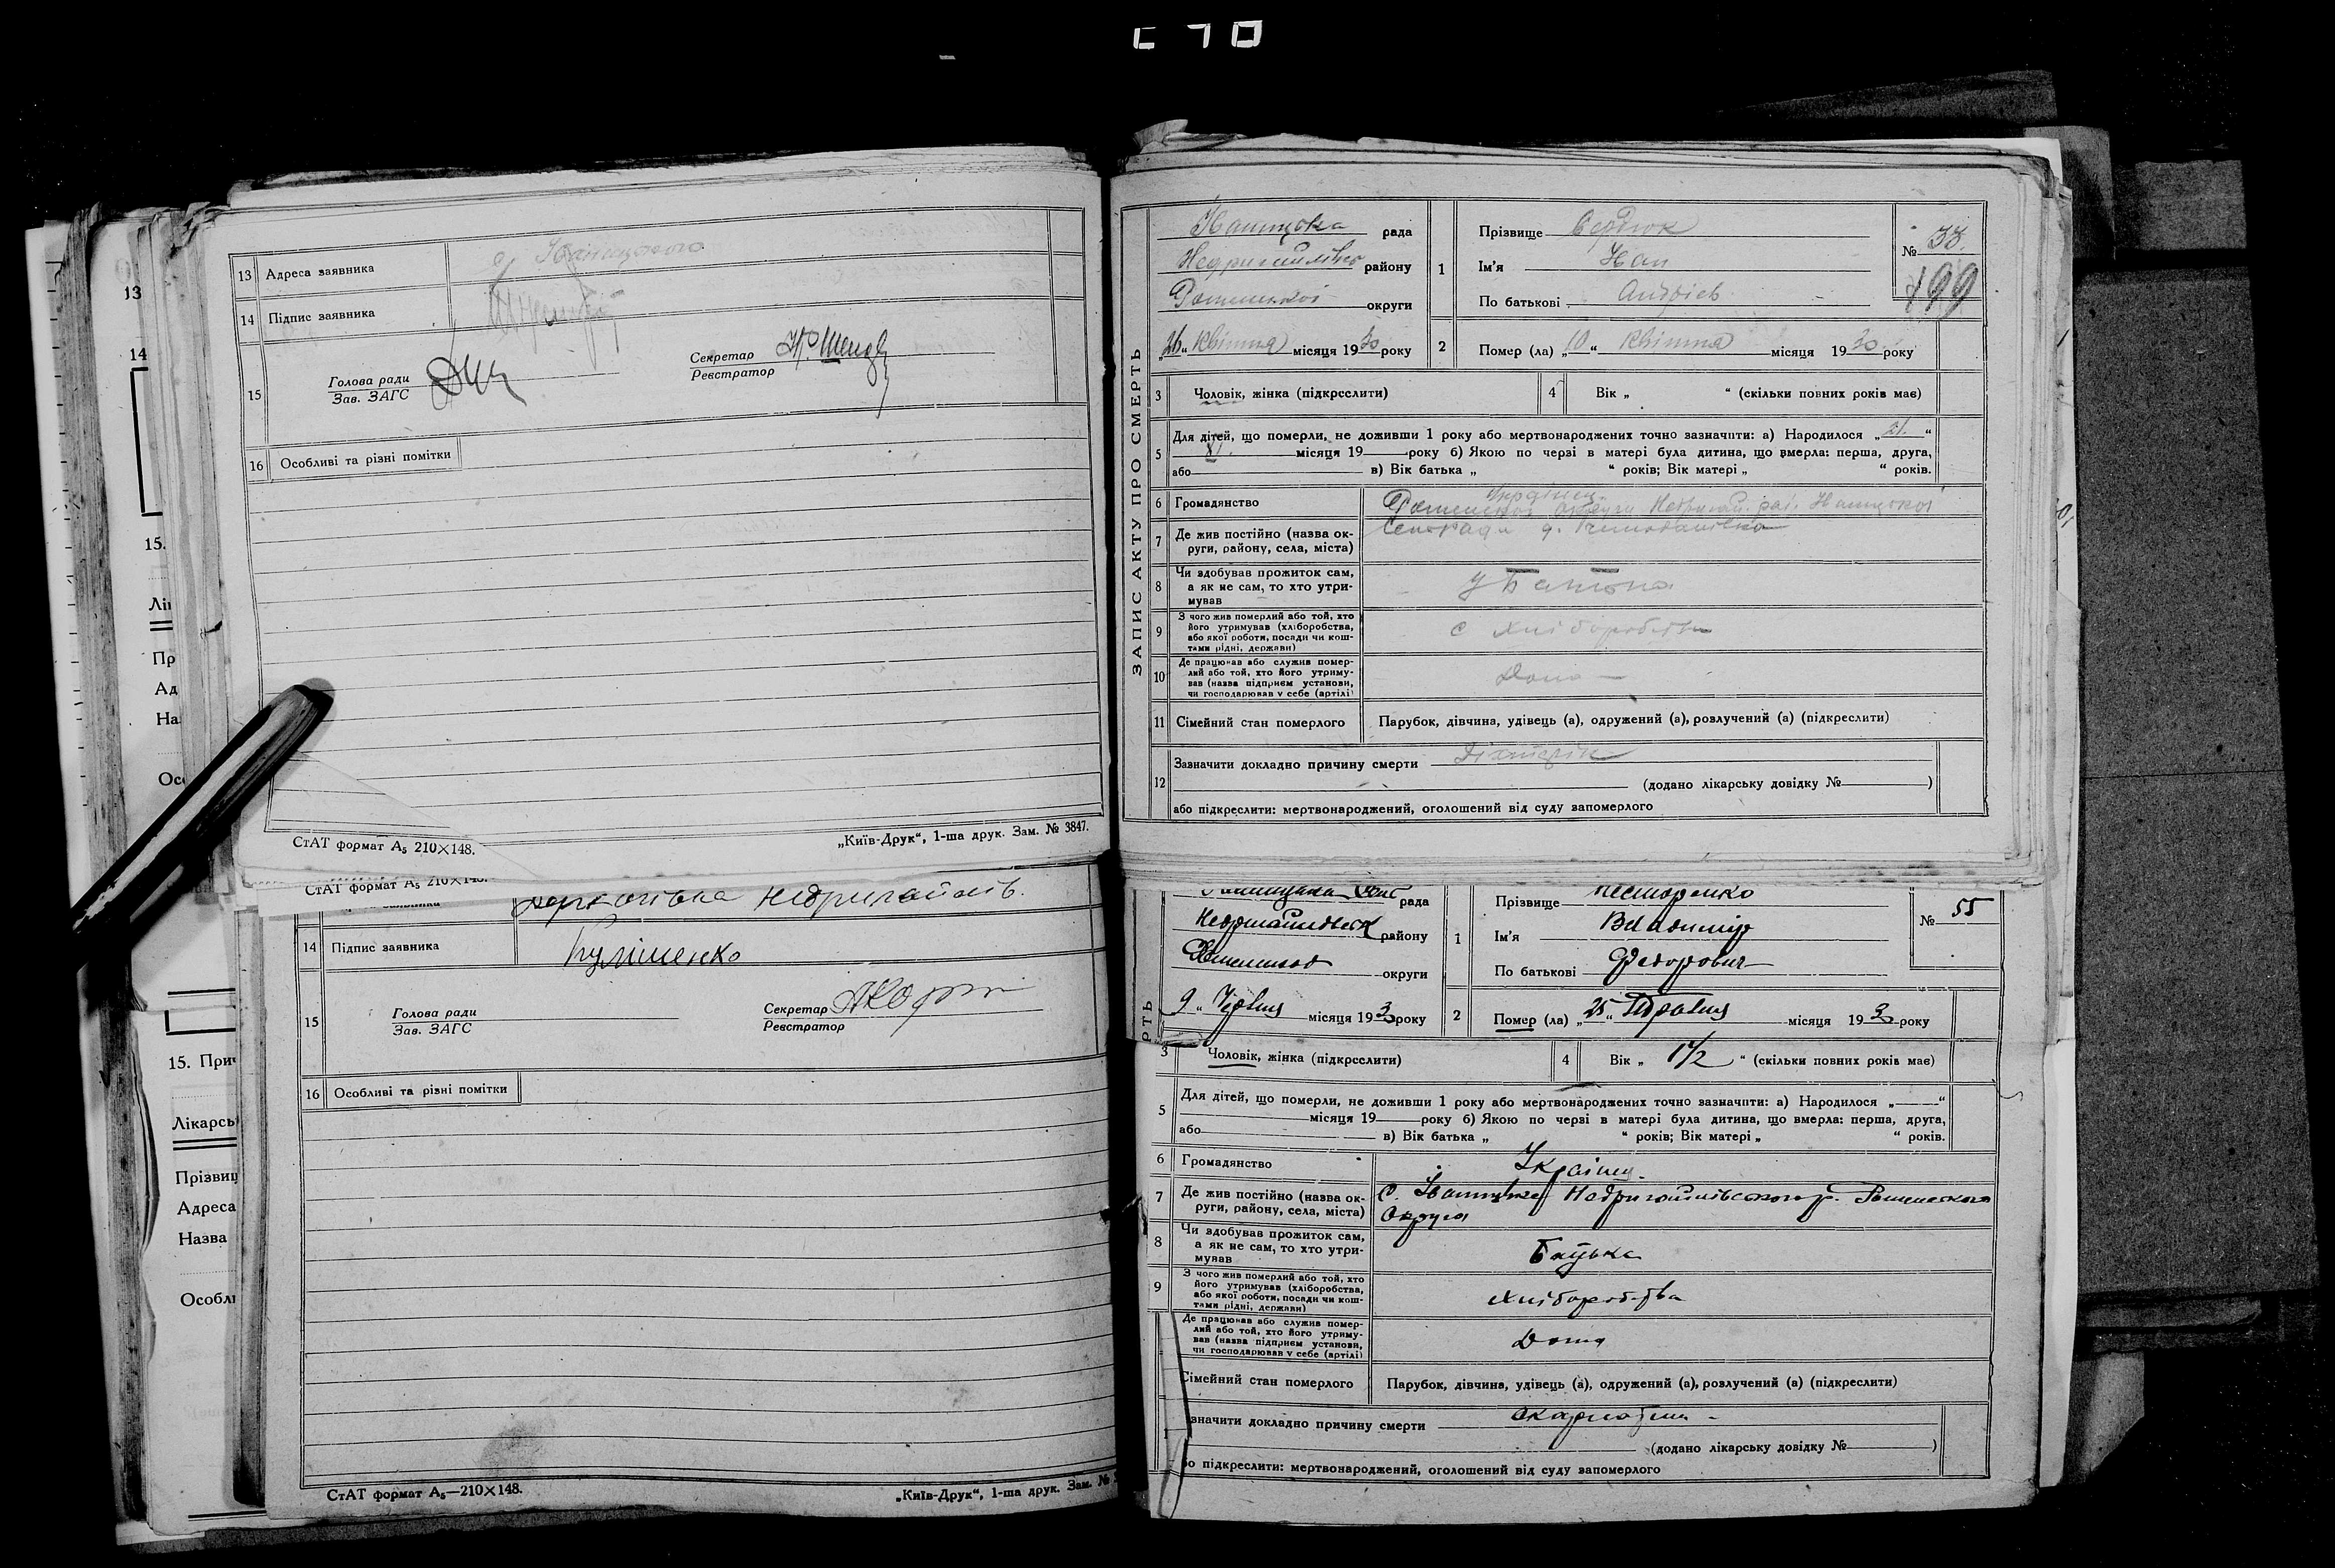 13 Адреса заявника
14 Підпис заявника
15 Голова ради
Зав. ЗАГС
Секретар
Реєстратор
16 Особливі та різні помітки
СтАТ формат А₅ 210×148.
„Київ-Друк“, 1-ша друк. Зам. № 3847.
13
14
15.
Лі
Пр
Ад
На
Ос
ЗАПИС АКТУ ПРО СМЕРТЬ
рада
району
округи
„26“ Квітня місяця 1930 року
1 Прізвище Сердюк
Ім'я Иан
По батькові Андріев
№ 33.
199
2 Помер (ла) „10“ Квітня місяця 1930 року
3 Чоловік, жінка (підкреслити)
4 Вік „ “ (скільки повних років має)
5 Для дітей, що померли, не доживши 1 року або мертвонароджених точно зазначити: а) Народилося „21.“
XI. місяця 19 року б) Якою по черзі в матері була дитина, що вмерла: перша, друга,
або в) Вік батька „ “ років; Вік матері „ “ років.
6 Громадянство Українец.
7 Де жив постійно (назва ок-
руги, району, села, міста)
Роменської округи Недригай. рай.
8 Чи здобував прожиток сам,
а як не сам, то хто утри-
мував
У Батька
9 З чого жив померлий або той, хто
його утримував (хліборобства,
або якої роботи, посади чи кош-
тами рідні, держави)
с хліборобства
10 Де працював або служив помер-
лий або той, хто його утриму-
вав (назва підприєм установи,
чи господарював у себе (артілі)
Дома
11 Сімейний стан померлого Парубок, дівчина, удівець (а), одружений (а), розлучений (а) (підкреслити)
12 Зазначити докладно причину смерти
(додано лікарську довідку № )
або підкреслити: мертвонароджений, оголошений від суду запомерлого
СтАТ формат А₅ 210×148.
Недригайлів.
14 Підпис заявника Кулішенко
15 Голова ради
Зав. ЗАГС
Секретар
Реєстратор
16 Особливі та різні помітки
СтАТ формат А₅—210×148.
„Київ-Друк“, 1-ша друк. Зам. №
15. Прич
Лікарсь
Прізвищ
Адреса
Назва
Особл
рада
району
округи
9 „ Червня місяця 193 року
1 Прізвище Нестеренко
Ім'я Владимір
По батькові Федорович
№ 55
2 Помер (ла) „25“ Травня місяця 193 року
РТЬ
3 Чоловік, жінка (підкреслити)
4 Вік „ 1 1/2 “ (скільки повних років має)
5 Для дітей, що померли, не доживши 1 року або мертвонароджених точно зазначити: а) Народилося „ “
місяця 19 року б) Якою по черзі в матері була дитина, що вмерла: перша, друга,
або в) Вік батька „ “ років; Вік матері „ “ років.
6 Громадянство Українец.
7 Де жив постійно (назва ок-
руги, району, села, міста)
с. Недригайлівського р. Роменского
Округа
8 Чи здобував прожиток сам,
а як не сам, то хто утри-
мував
Батька
9 З чого жив померлий або той, хто
його утримував (хліборобства,
або якої роботи, посади чи кош-
тами рідні, держави)
хліборобства
Де працював або служив помер-
лий або той, хто його утриму-
вав (назва підприєм установи,
чи господарював у себе (артілі)
Дома
Сімейний стан померлого Парубок, дівчина, удівець (а), одружений (а), розлучений (а) (підкреслити)
значити докладно причину смерти Скарлатина
(додано лікарську довідку № )
бо підкреслити: мертвонароджений, оголошений від суду запомерлого